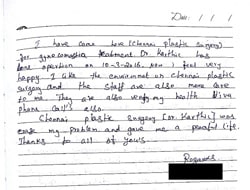 Date: / /
I have come here (Chennai plastic surgery)
for gynecomastia treatment. Dr. Karthik has
done operation on 10-3-2016, now i feel very
happy. I like the enviroment at chennai plastic
surgery and the staff are also more care
to me. They are also verify my health Viva
phone calls
Chennai plastic surgery [Dr. Karthik] was
my problem and gave me a peaceful life.
Thanks to all of you's
Regards